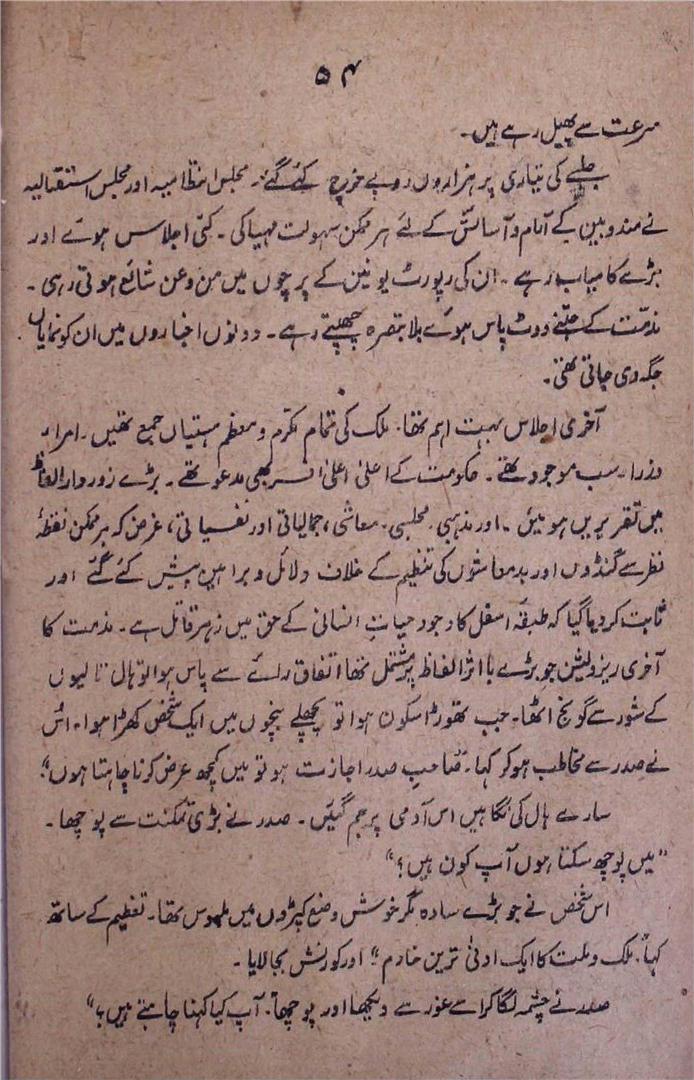 ۵۴
سرعت سے پھیل رہے ہیں۔
جلسے کی تیاری پر ہزاروں روپے خرچ کئے گئے۔ مجلس انتظامیہ اور مجلس استقبالیہ
نے مندوبین کے آرام و آسائش کے لئے ہر ممکن سہولت مہیا کی۔ کئی اجلاس ہوئے اور
بڑے کامیاب رہے۔ ان کی رپورٹ یونین کے پرچوں میں من و عن شائع ہوتی رہی۔
مذمّت کے جتنے ووٹ پاس ہوئے بلا تبصرہ چھپتے رہے۔ دونوں اخباروں میں ان کو نمایاں
جگہ دی جاتی تھی۔
آخری اجلاس بہت اہم تھا۔ ملک کی تمام مکرم و معظم ہستیاں جمع تھیں۔ امراء
وزراء سب موجود تھے۔ حکومت کے اعلیٰ اعلیٰ افسر بھی مدعو تھے۔ بڑے زوردار الفاظ
میں تقریریں ہوئیں۔ اور مذہبی، مجلسی، معاشی، جمالیاتی اور نفسیاتی، غرض کہ ہر ممکن نقطۂ
نظر سے گنڈوں اور بدمعاشوں کی تنظیم کے خلاف دلائل و براہین پیش کئے گئے اور
ثابت کر دیا گیا کہ طبقۂ اسفل کا وجود حیاتِ انسانی کے حق میں زہرِ قاتل ہے۔ مذمت کا
آخری ریزولیشن جو بڑے با اثر الفاظ پر مشتمل تھا اتفاق رائے سے پاس ہوا تو ہال تالیوں
کے شور سے گونج اٹھا۔ جب تھوڑا سکون ہوا تو پچھلے بنچوں میں ایک شخص کھڑا ہوا۔ اس
نے صدر سے مخاطب ہو کر کہا۔ "صاحبِ صدر اجازت ہو تو میں کچھ عرض کرنا چاہتا ہوں"
سارے ہال کی نگاہیں اس آدمی پر جم گئیں۔ صدر نے بڑی تمکنت سے پوچھا۔
"میں پوچھ سکتا ہوں آپ کون ہیں؟"
اس شخص نے جو بڑے سادہ مگر خوش وضع کپڑوں میں ملبوس تھا۔ تعظیم کے ساتھ
کہا "ملک و ملت کا ایک ادنیٰ ترین خادم" اور کورنش بجا لایا۔
صدر نے چشمہ لگا کر اسے غور سے دیکھا اور پوچھا۔ "آپ کیا کہنا چاہتے ہیں؟"